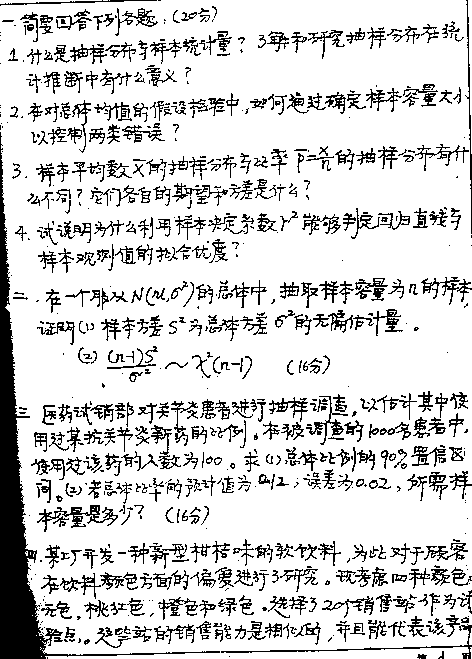 一. 简要回答下列各题: (20分)
1. 什么是抽样分布与样本统计量? 了解和研究抽样分布在统
计推断中有什么意义?
2. 在对总体均值的假设检验中, 如何通过确定样本容量大小
以控制两类错误?
3. 样本平均数X̄的抽样分布与比率 P̄=X/n 的抽样分布有什
么不同? 它们各自的期望和方差是什么?
4. 试说明为什么利用样本决定系数 r² 能够判定回归直线与
样本观测值的拟合优度?
二. 在一个服从N(μ,σ²)的总体中, 抽取样本容量为n的样本
证明(1) 样本方差 S² 为总体方差 σ² 的无偏估计量。
(2) (n-1)S²/σ² ~ χ²(n-1) (16分)
三. 医药试销部对关节炎患者进行抽样调查, 以估计其中使
用过某抗关节炎新药的比例。在被调查的1000名患者中,
使用过该药的人数为100。求(1)总体比例的90%置信区
间。(2)若总体比率的预计值为0.12, 误差为0.02, 所需样
本容量是多少? (16分)
四. 某工厂开发一种新型柑桔味的软饮料, 为此对于顾客
在饮料颜色方面的偏爱进行了研究。试考虑四种颜色:
无色, 桃红色, 橙色和绿色。选择了20个销售站作为试
验点。这些站的销售能力是相似的, 并且能代表该产品
第 1 页